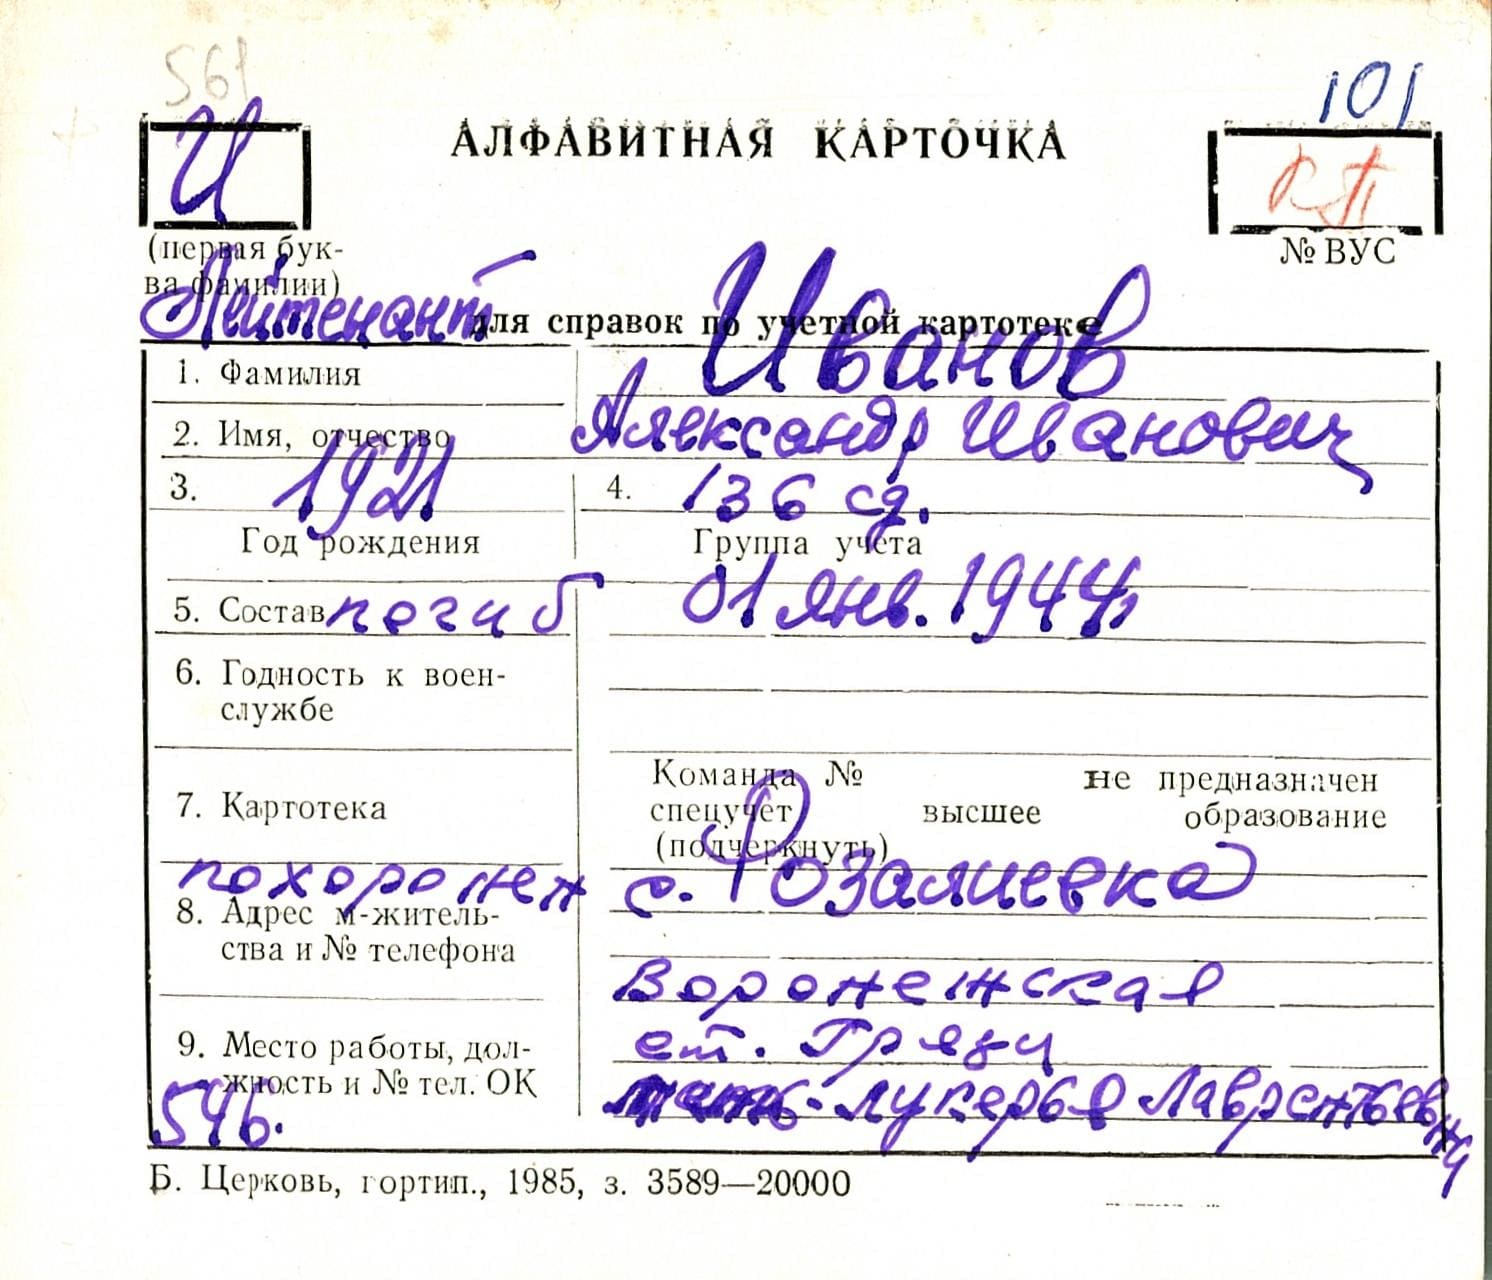 561
101
И
АЛФАВИТНАЯ КАРТОЧКА
(первая бук-
ва фамилии)
№ ВУС
Лейтенант
для справок по учетной картотеке
1. Фамилия Иванов
2. Имя, отчество Александр Иванович
3. 1921 4. 136 сд.
Год рождения Группа учета
5. Состав погиб 01 янв. 1944г
6. Годность к воен-
службе
Команда № не предназначен
7. Картотека спецучет высшее образование
(подчеркнуть)
похоронен с. Розалиевка
8. Адрес м-житель-
ства и № телефона
Воронежская
9. Место работы, дол- ст. Грязи
жность и № тел. ОК
мать - Лукерья Лаврентьевна
54б.
Б. Церковь, гортип., 1985, з. 3589—20000